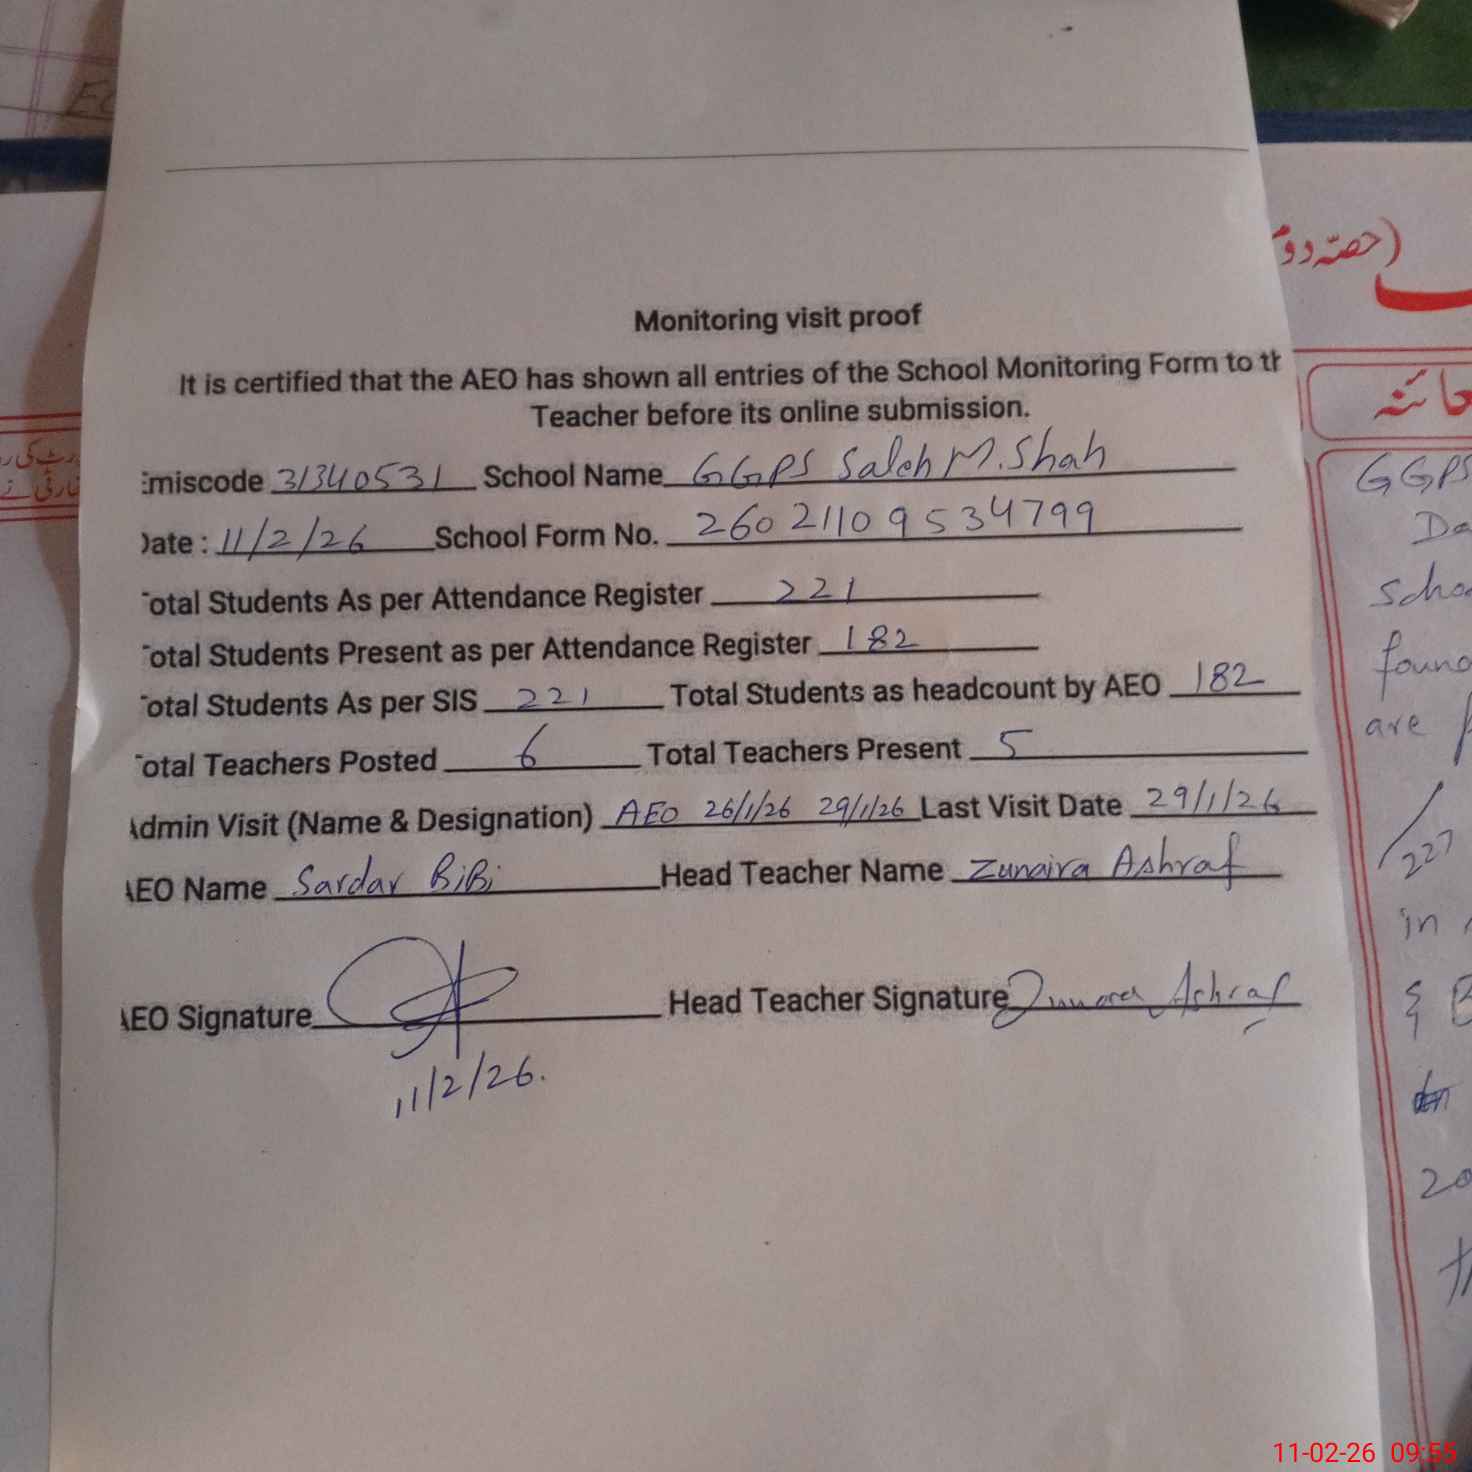 Monitoring visit proof
It is certified that the AEO has shown all entries of the School Monitoring Form to th
Teacher before its online submission.
Emiscode 31340531 School Name GGPS Saleh M. Shah
Date : 11/2/26 School Form No. 26021109534799
Total Students As per Attendance Register 221
Total Students Present as per Attendance Register 182
Total Students As per SIS 221 Total Students as headcount by AEO 182
Total Teachers Posted 6 Total Teachers Present 5
Admin Visit (Name & Designation) AEO 26/1/26 29/1/26 Last Visit Date 29/1/26
AEO Name Sardar BiBi Head Teacher Name Zunaira Ashraf
AEO Signature Head Teacher Signature Zunaira Ashraf
11/2/26.
(حصہ دوم
GGPS
Da
scho
found
are
in
20
11-02-26 09:55